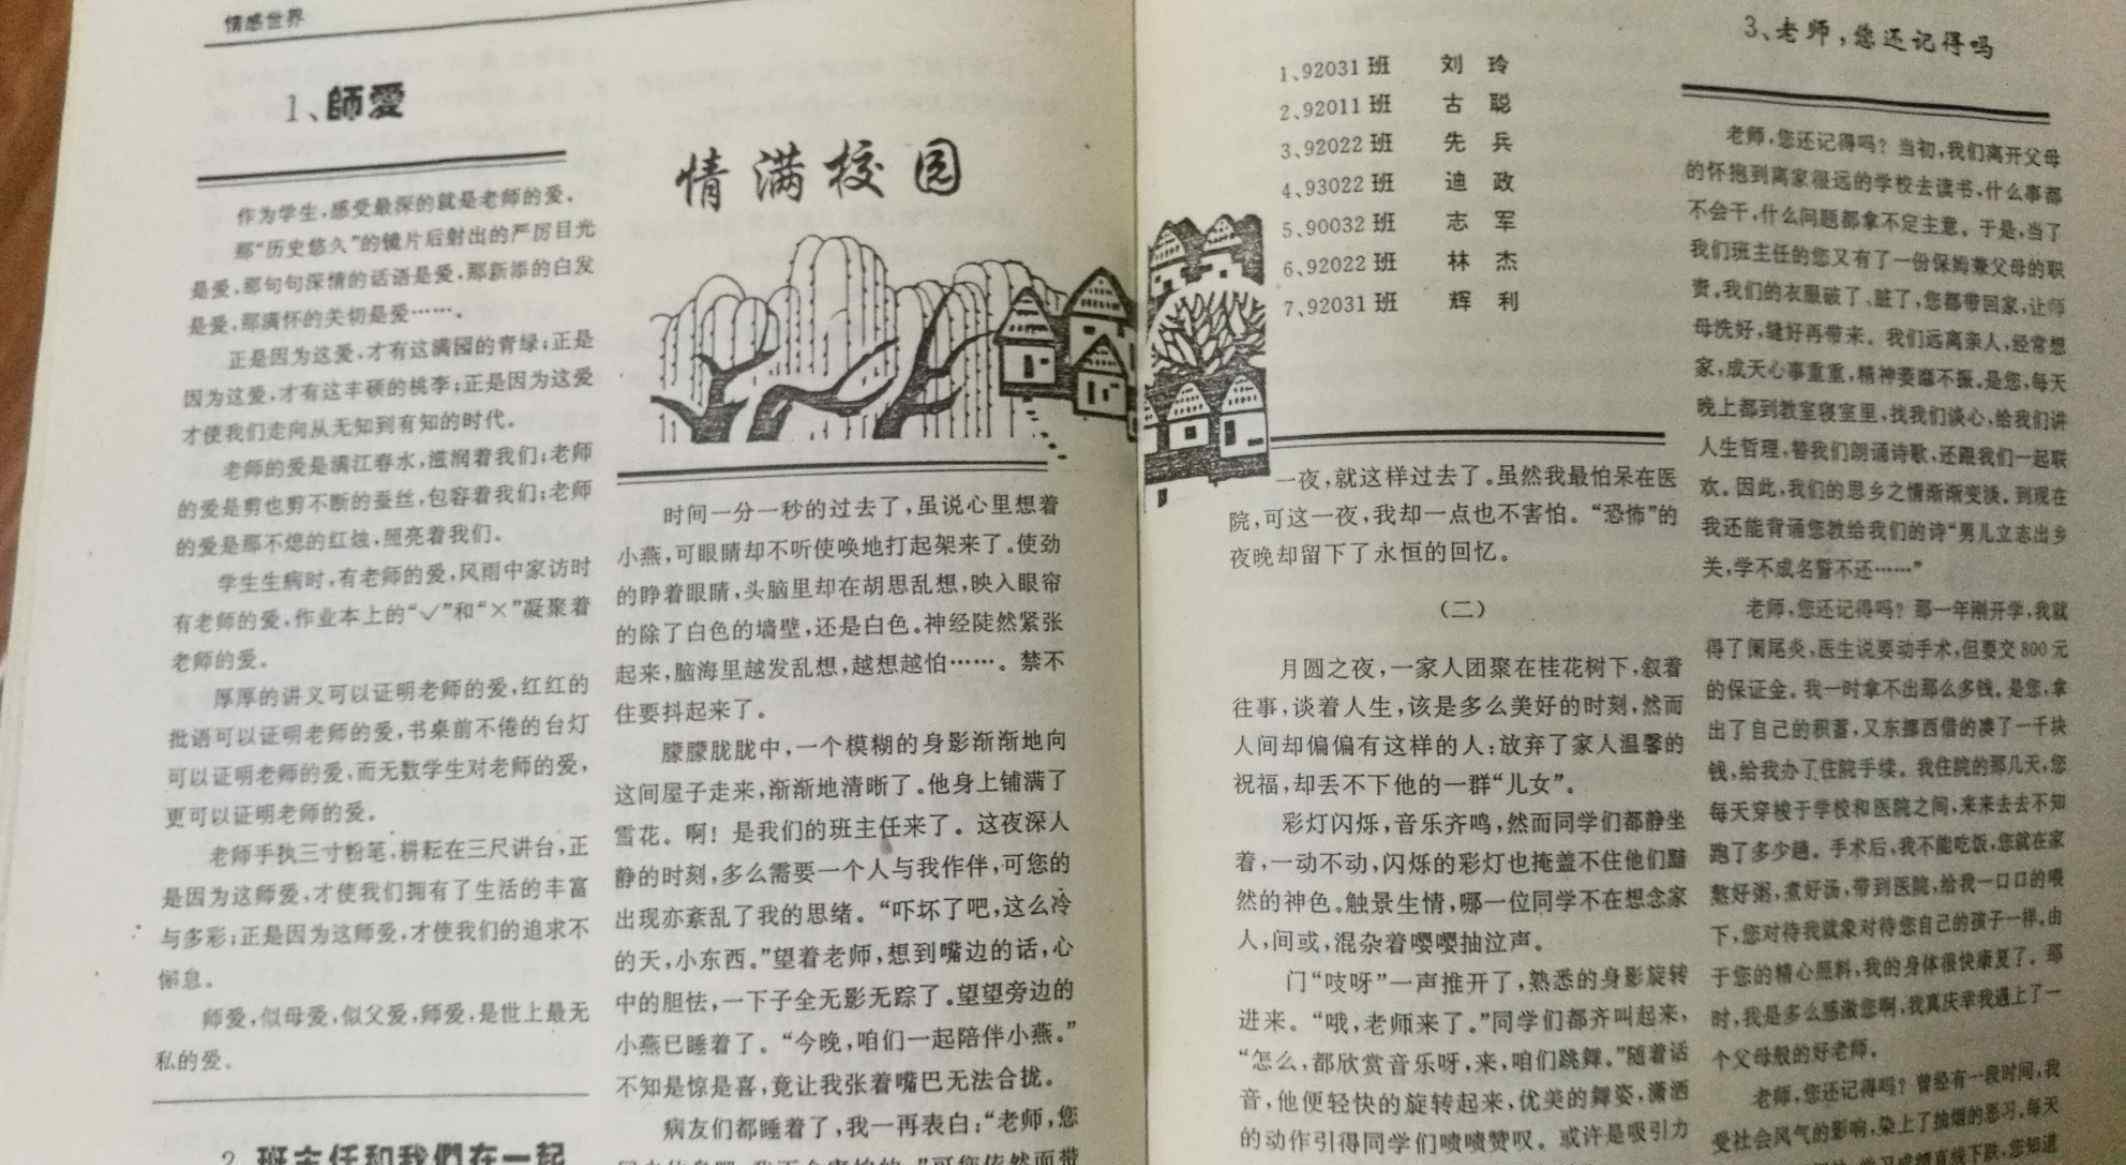 情感世界
1、師愛
作为学生,感受最深的就是老师的爱。
那“历史悠久”的镜片后射出的严厉目光
是爱,那句句深情的话语是爱,那新添的白发
是爱,那满怀的关切是爱……。
正是因为这爱,才有这满园的青绿;正是
因为这爱,才有这丰硕的桃李;正是因为这爱
才使我们走向从无知到有知的时代。
老师的爱是满江春水,滋润着我们;老师
的爱是剪也剪不断的蚕丝,包容着我们;老师
的爱是那不熄的红烛,照亮着我们。
学生生病时,有老师的爱,风雨中家访时
有老师的爱,作业本上的“✓”和“×”凝聚着
老师的爱。
厚厚的讲义可以证明老师的爱,红红的
批语可以证明老师的爱,书桌前不倦的台灯
可以证明老师的爱,而无数学生对老师的爱,
更可以证明老师的爱。
老师手执三寸粉笔,耕耘在三尺讲台,正
是因为这师爱,才使我们拥有了生活的丰富
与多彩;正是因为这师爱,才使我们的追求不
倦息。
师爱,似母爱,似父爱,师爱,是世上最无
私的爱。
2、班主任和我們在一起
情满校园
时间一分一秒的过去了,虽说心里想着
小燕,可眼睛却不听使唤地打起架来了。使劲
的睁着眼睛,头脑里却在胡思乱想,映入眼帘
的除了白色的墙壁,还是白色。神经陡然紧张
起来,脑海里越发乱想,越想越怕……。禁不
住要抖起来了。
朦朦胧胧中,一个模糊的身影渐渐地向
这间屋子走来,渐渐地清晰了。他身上铺满了
雪花。啊！是我们的班主任来了。这夜深人
静的时刻,多么需要一个人与我作伴,可您的
出现亦紊乱了我的思绪。“吓坏了吧,这么冷
的天,小东西。”望着老师,想到嘴边的话,心
中的胆怯,一下子全无影无踪了。望望旁边的
小燕已睡着了。“今晚,咱们一起陪伴小燕。”
不知是惊是喜,竟让我张着嘴巴无法合拢。
病友们都睡着了,我一再表白:“老师,您
1、92031班 刘 玲
2、92011班 古 聪
3、92022班 先 兵
4、93022班 迪 政
5、90032班 志 军
6、92022班 林 杰
7、92031班 辉 利
一夜,就这样过去了。虽然我最怕呆在医
院,可这一夜,我却一点也不害怕。“恐怖”的
夜晚却留下了永恒的回忆。
(二)
月圆之夜,一家人团聚在桂花树下,叙着
往事,谈着人生,该是多么美好的时刻,然而
人间却偏偏有这样的人:放弃了家人温馨的
祝福,却丢不下他的一群“儿女”。
彩灯闪烁,音乐齐鸣,然而同学们都静坐
着,一动不动,闪烁的彩灯也掩盖不住他们黯
然的神色。触景生情,哪一位同学不在想念家
人,间或,混杂着嘤嘤抽泣声。
门“吱呀”一声推开了,熟悉的身影旋转
进来。“哦,老师来了。”同学们都齐叫起来,
“怎么,都欣赏音乐呀,来,咱们跳舞。”随着话
音,他便轻快的旋转起来,优美的舞姿,潇洒
的动作引得同学们啧啧赞叹。或许是吸引力
3、老师,您还记得吗
老师,您还记得吗？当初,我们离开父母
的怀抱到离家很远的学校去读书,什么事都
不会干,什么问题都拿不定主意。于是,当了
我们班主任的您又有了一份保姆兼父母的职
责,我们的衣服破了、脏了,您都带回家,让师
母洗好,缝好再带来。我们远离亲人,经常想
家,成天心事重重,精神萎靡不振。是您,每天
晚上都到教室寝室里,找我们谈心,给我们讲
人生哲理,替我们朗诵诗歌,还跟我们一起联
欢。因此,我们的思乡之情渐渐变淡。到现在
我还能背诵您教给我们的诗“男儿立志出乡
关,学不成名誓不还……”
老师,您还记得吗？那一年刚开学,我就
得了阑尾炎,医生说要动手术,但要交800元
的保证金。我一时拿不出那么多钱。是您,拿
出了自己的积蓄,又东挪西借的凑了一千块
钱,给我办了住院手续。我住院的那几天,您
每天穿梭于学校和医院之间,来来去去不知
跑了多少趟。手术后,我不能吃饭,您就在家
熬好粥,煮好汤,带到医院,给我一口口的喂
下,您对待我就象对待您自己的孩子一样,由
于您的精心照料,我的身体很快康复了。那
时,我是多么感激您啊,我真庆幸我遇上了一
个父母般的好老师。
老师,您还记得吗？曾经有一段时间,我
受社会风气的影响,染上了抽烟的恶习,每天